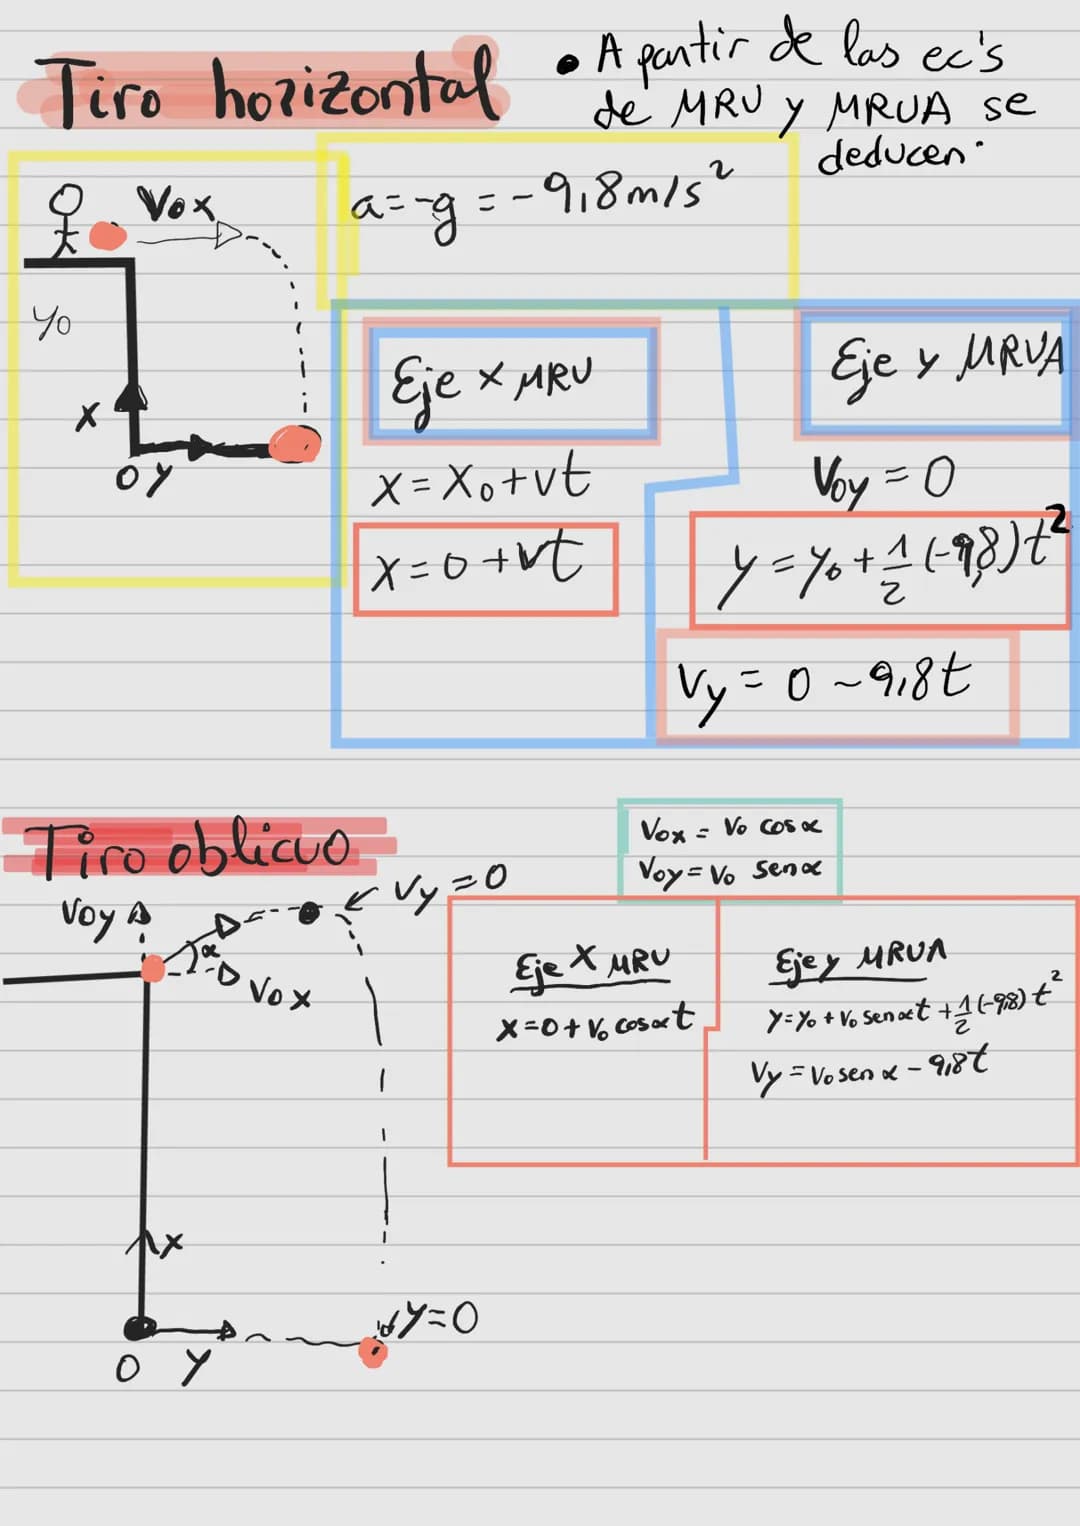 Tiro horizontal
• A partir de las ec's
de MRU y MRUA se
deducen:
Vox
a=-g = -9,8m/s²
yo
x
O y
Eje x MRU
x = x₀+vt
x=0+vt
Eje y MRUA
Voy = 0
y = y₀ + 1/2 (-9,8)t²
Vy = 0 - 9,8t
Tiro oblicuo
Vox = Vo cosα
Voy = Vo senα
Voy
Vy = 0
α
Vox
Eje X MRU
x=0+V₀ cosαt
Eje y MRUA
y=y₀ + V₀ senαt + 1/2 (-9,8) t²
Vy = Vo sen α - 9,8t
x
y=0
O y